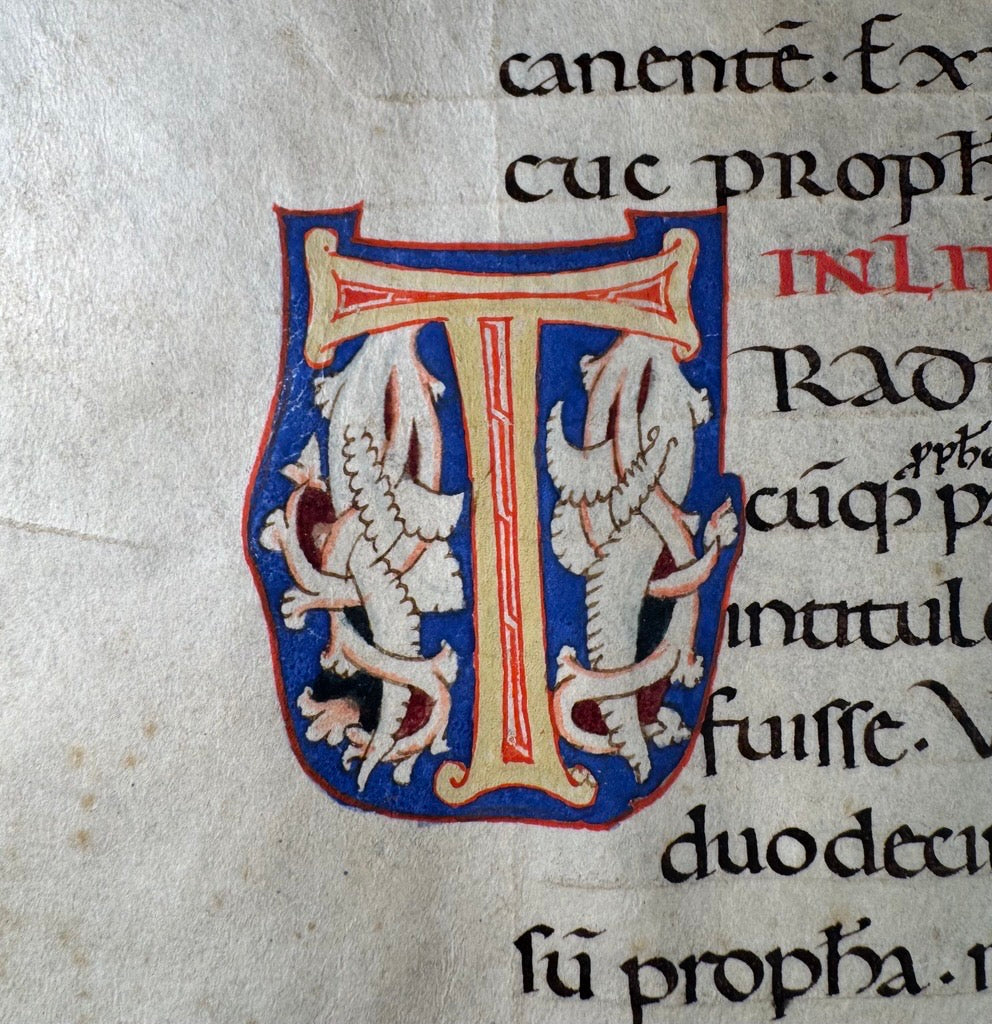 canentē. Ex
cuc propħ
INLI
T RAD
ppħe
cūq; p
intitul
fuisse. V
duodeci
sū propħa.